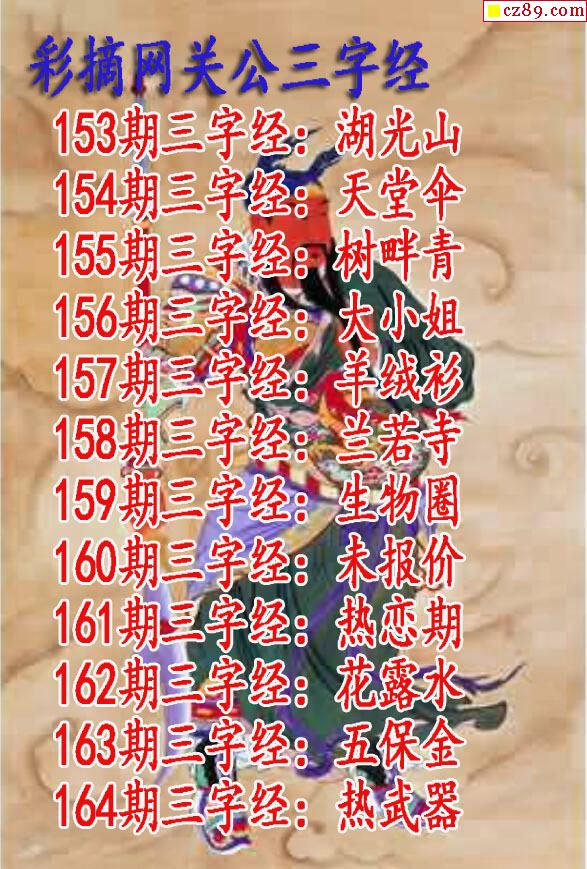 cz89.com
彩摘网关公三字经
153期三字经：湖光山
154期三字经：天堂伞
155期三字经：树畔青
156期三字经：大小姐
157期三字经：羊绒衫
158期三字经：兰若寺
159期三字经：生物圈
160期三字经：未报价
161期三字经：热恋期
162期三字经：花露水
163期三字经：五保金
164期三字经：热武器